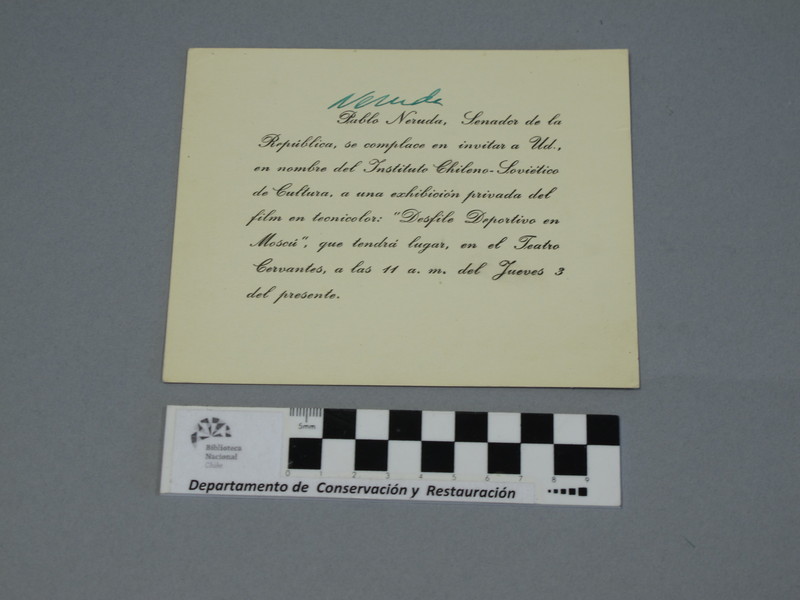 Neruda
Pablo Neruda, Senador de la
República, se complace en invitar a Ud.,
en nombre del Instituto Chileno-Soviético
de Cultura, a una exhibición privada del
film en tecnicolor: "Desfile Deportivo en
Moscú", que tendrá lugar, en el Teatro
Cervantes, a las 11 a. m. del Jueves 3
del presente.
5mm
Biblioteca
Nacional
Chile
0 1 2 3 4 5 6 7 8 9
Departamento de Conservación y Restauración